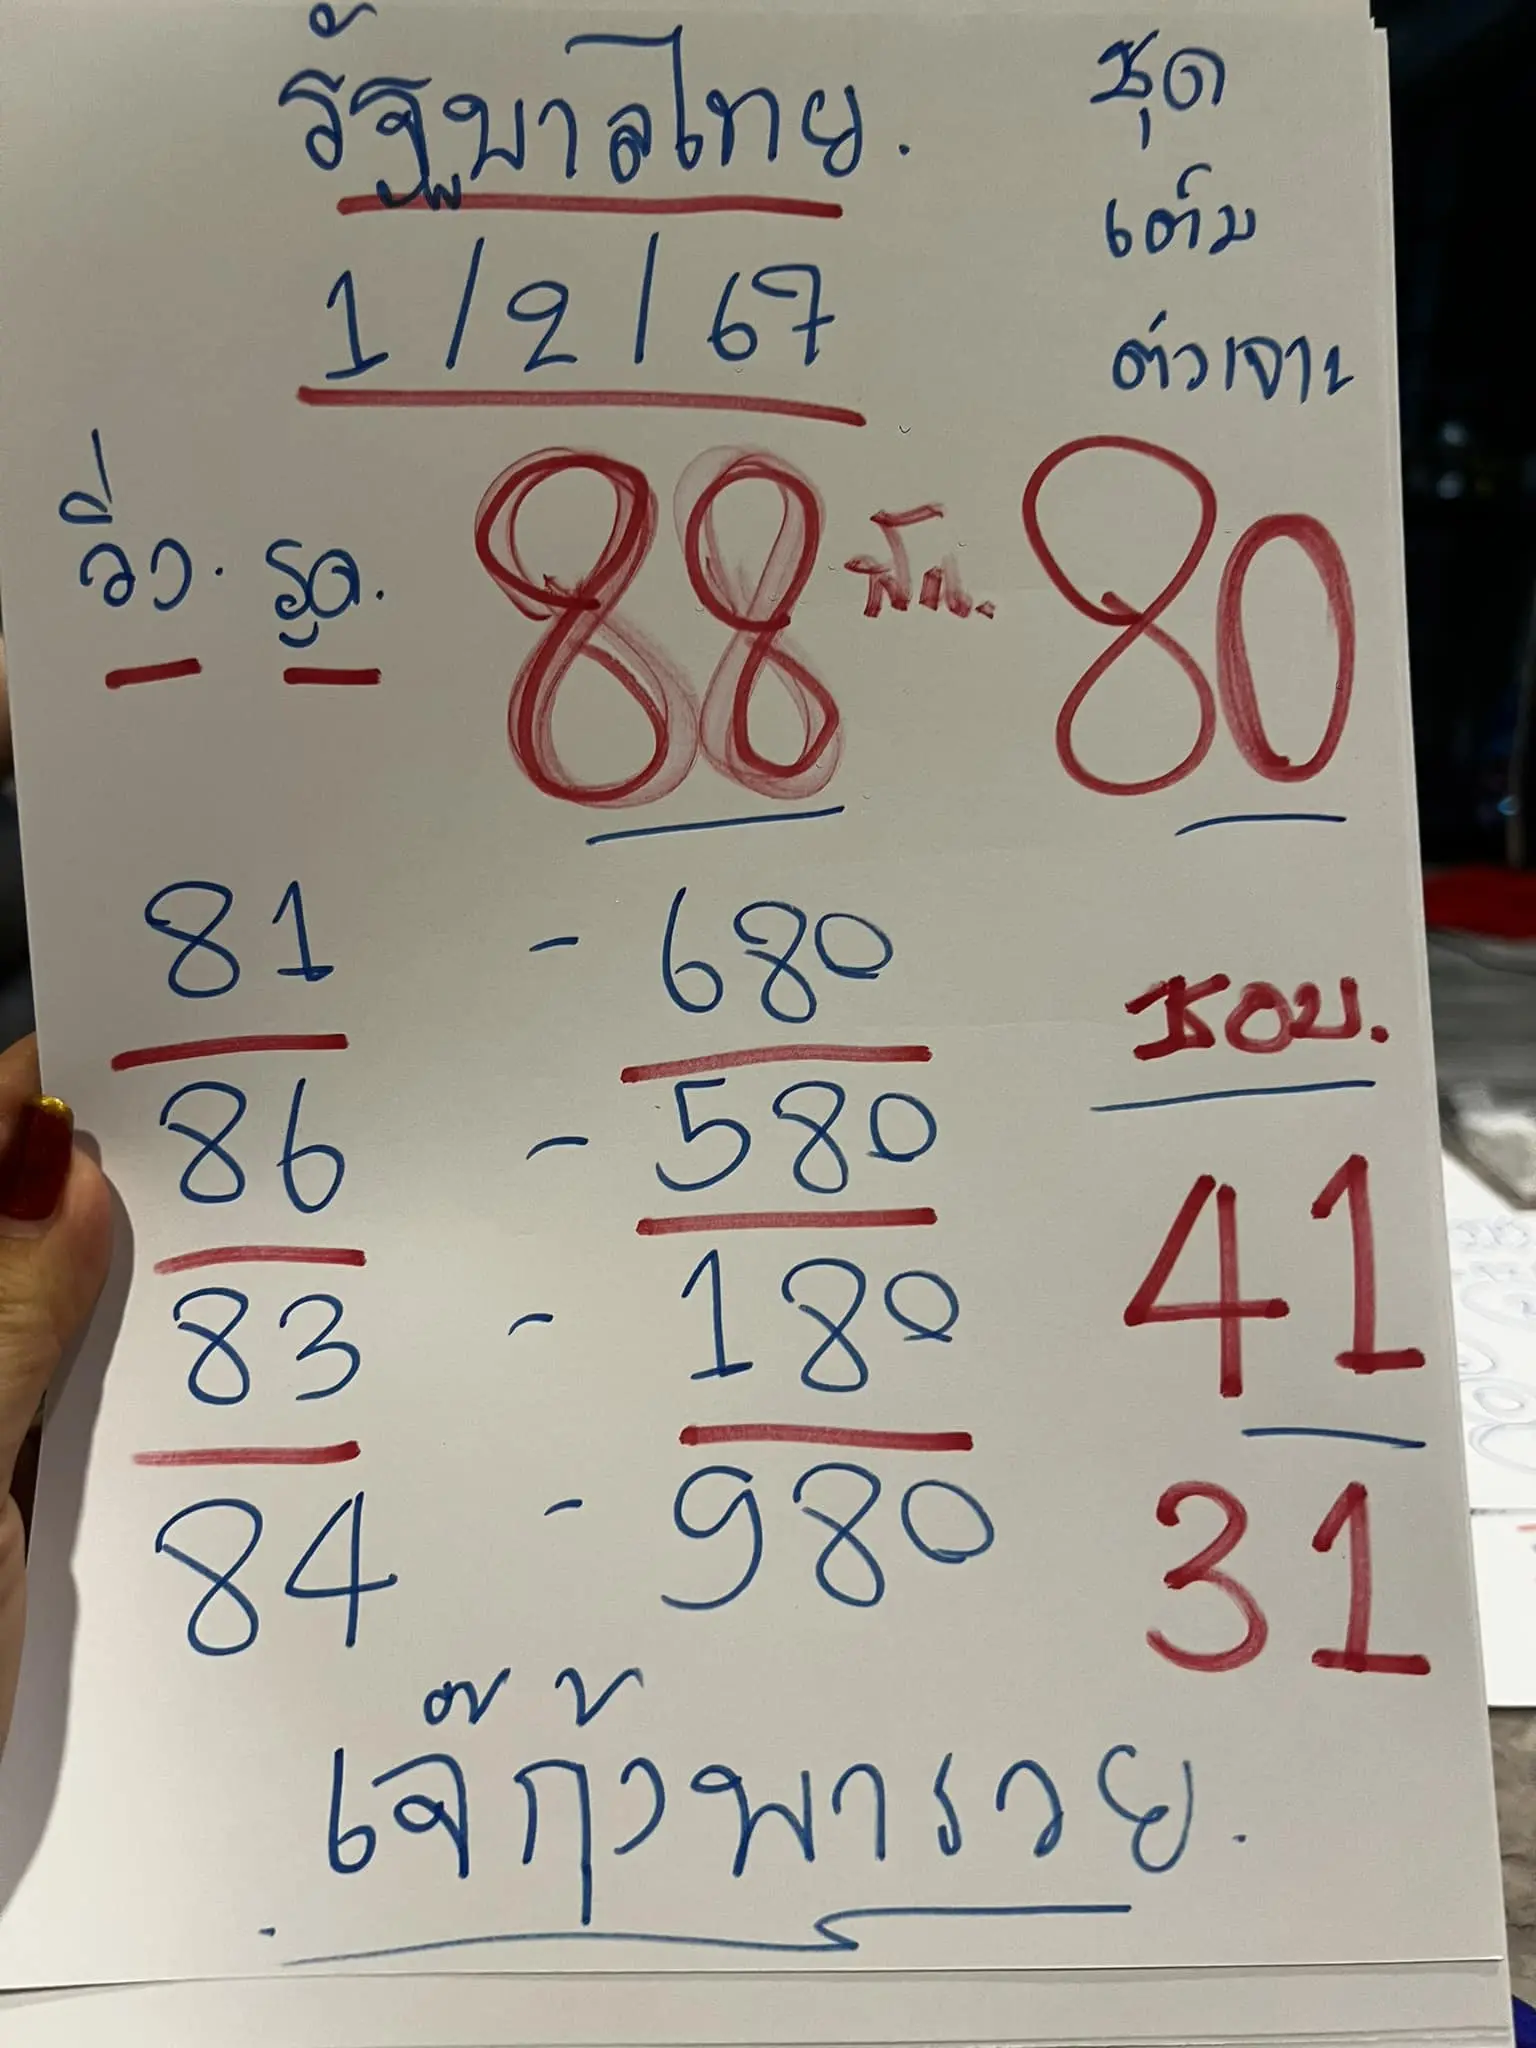 รัฐบาลไทย.
1/2/67
ชุด
เต็ม
วิ่ว. รูด.
88
80
81 - 680
86 - 580
83 - 180
84 - 980
ชอบ.
41
31
เจ๊กุ้งพารวย.